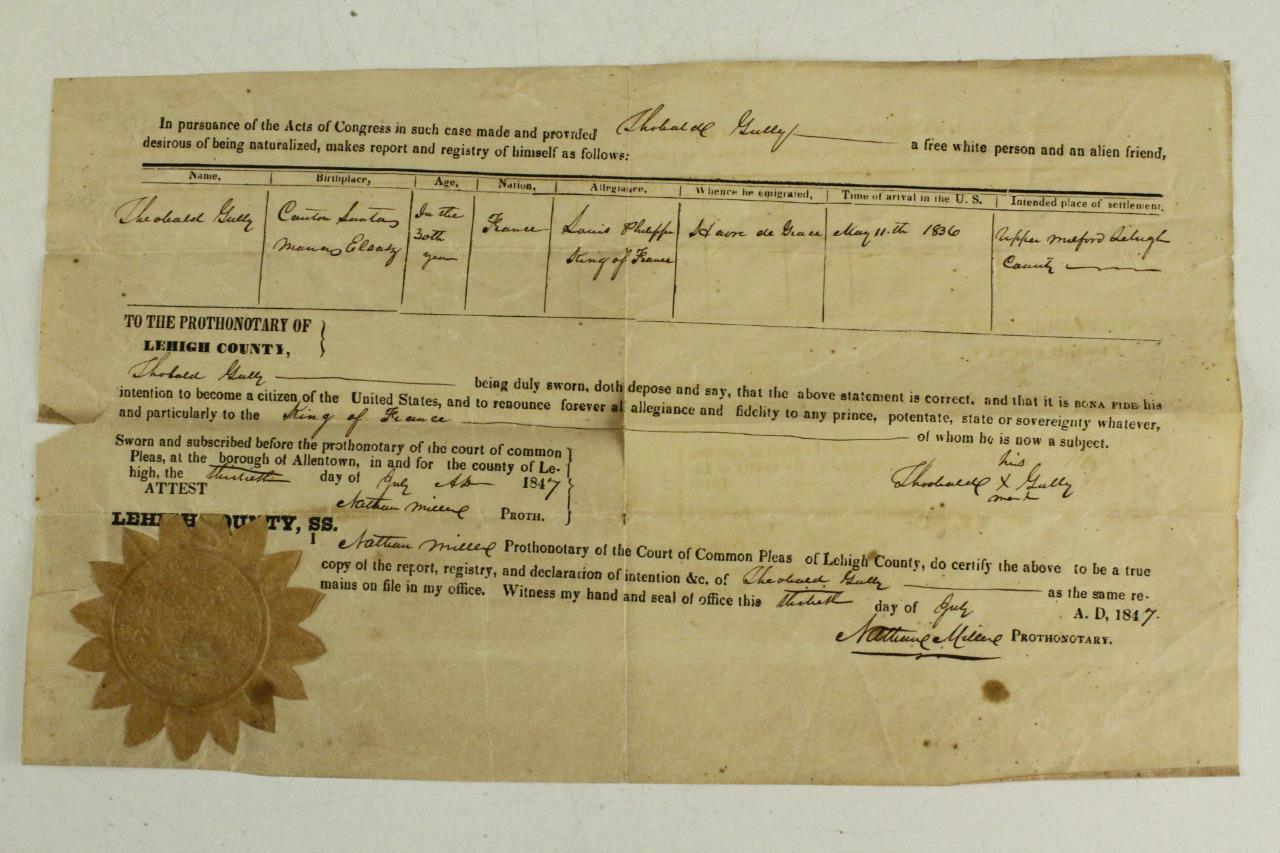 In pursuance of the Acts of Congress in such case made and provided Thobald Gully
a free white person and an alien friend,
desirous of being naturalized, makes report and registry of himself as follows:
Name, Birthplace, Age, Nation, Allegiance, Whence he emigrated, Time of arival in the U. S. Intended place of settlement,
Theobald Gully Canton In the France Louis Philippe Havre de Grace May 11.th 1836 Upper Milford Lehigh
30th King of France County
year
TO THE PROTHONOTARY OF
LEHIGH COUNTY,
Thobald Gully being duly sworn, doth depose and say, that the above statement is correct, and that it is BONA FIDE his
intention to become a citizen of the United States, and to renounce forever all allegiance and fidelity to any prince, potentate, state or sovereignty whatever,
and particularly to the King of France of whom he is now a subject.
Sworn and subscribed before the prothonotary of the court of common
Pleas, at the borough of Allentown, in and for the county of Le-
high, the thirtieth day of July AD 1847
ATTEST
Nathan Miller PROTH.
his
Thobald X Gully
mark
LEHIGH COUNTY, SS.
I Nathan Miller Prothonotary of the Court of Common Pleas of Lehigh County, do certify the above to be a true
copy of the report, registry, and declaration of intention &c. of Theobald Gully as the same re-
mains on file in my office. Witness my hand and seal of office this thirtieth day of July A. D, 1847.
Nathan Miller PROTHONOTARY.